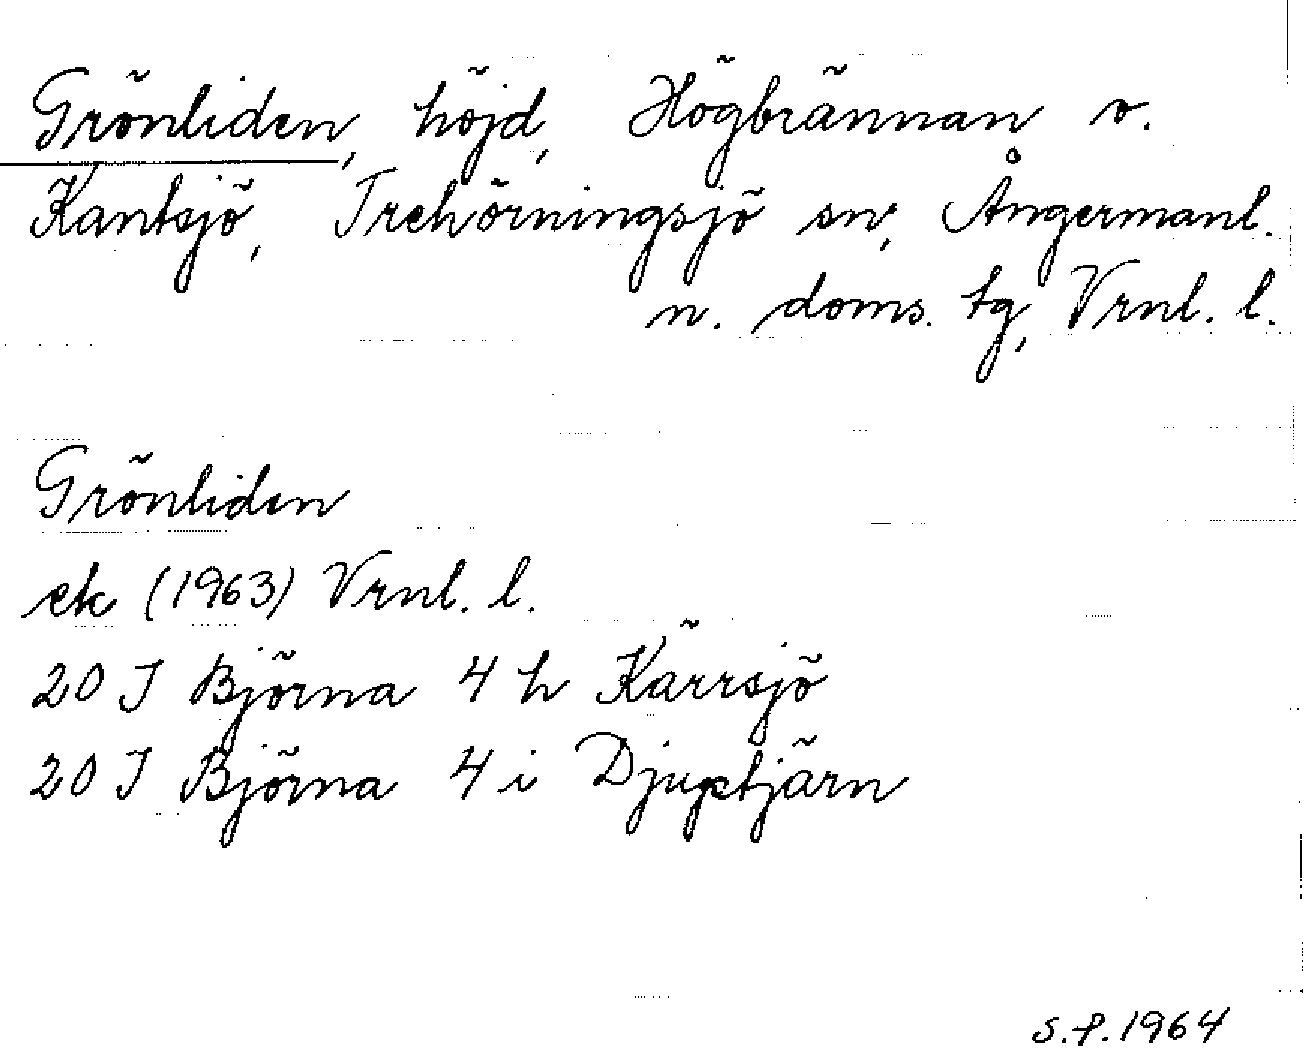 Grönliden, höjd, Högbrännan o.
Kantsjö, Trehörningsjö sn, Ångermanl.
n. doms. tg, Vrnl. l.
Grönliden
ek (1963) Vrnl. l.
20 J Björna 4 h Kärrsjö
20 J Björna 4 i Djuptjärn
S.P. 1964